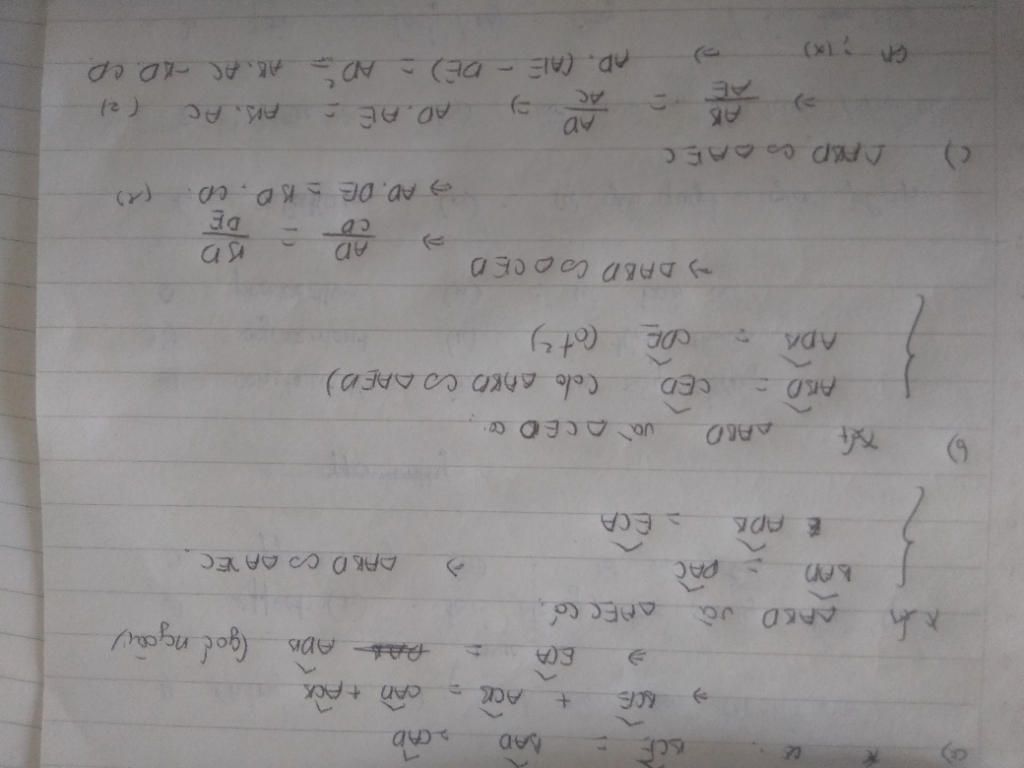 a) * vì: BCE = BAD = CAD
⇒ BCE + ACB = CAD + ACB
⇒ ECA = ADB (góc ngoài)
* Xét ΔABD và ΔAEC có:
{ BAD = DAC
ADB = ECA ⇒ ΔABD ∽ ΔAEC.
b) Xét ΔABD và ΔCED có:
{ ABD = CED (do ΔABD ∽ ΔAED)
ADB = CDE (đđ)
⇒ ΔABD ∽ ΔCED
⇒ AD/CD = BD/DE
⇒ AD.DE = BD.CD. (1)
c) ΔABD ∽ ΔAEC
⇒ AB/AE = AD/AC ⇒ AD.AE = AB.AC (2)
⇒ AD.(AE - DE) = AD² = AB.AC - BD.CD